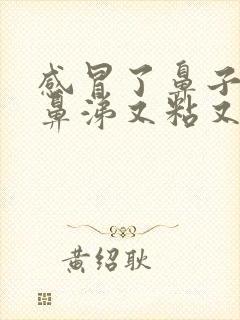 感冒了鼻子
鼻涕又粘又
黄绍耿